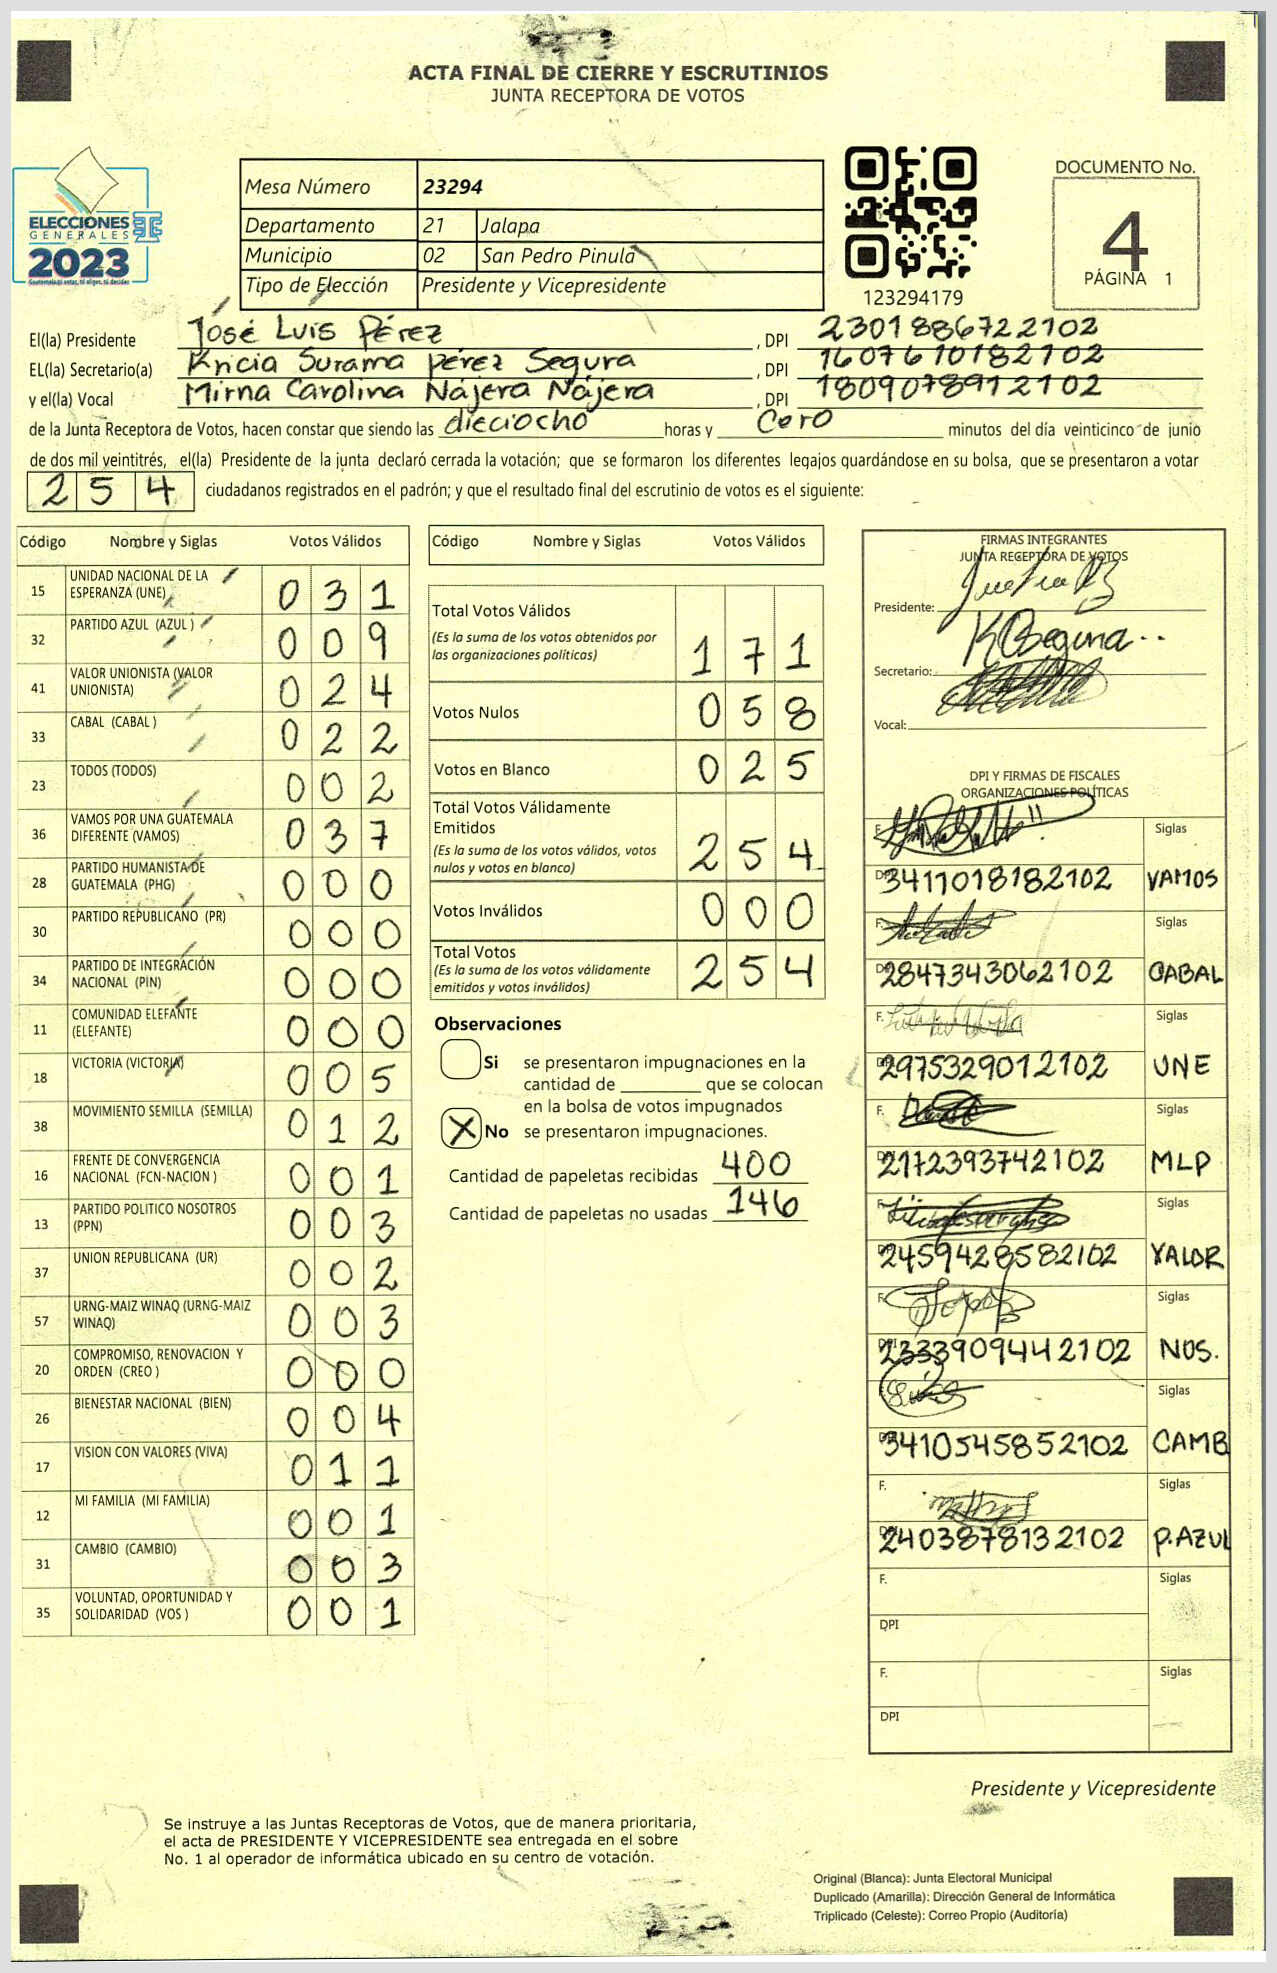 ACTA FINAL DE CIERRE Y ESCRUTINIOS
JUNTA RECEPTORA DE VOTOS
ELECCIONES
GENERALES
2023
Guatemala si votas, tú eliges, tú decides
Mesa Número 23294
Departamento 21 Jalapa
Municipio 02 San Pedro Pinula
Tipo de Elección Presidente y Vicepresidente
123294179
DOCUMENTO No.
4
PÁGINA 1
El(la) Presidente José Luis Pérez , DPI 2301886722102
EL(la) Secretario(a) Kricia Surama Pérez Segura , DPI 1607610182102
y el(la) Vocal Mirna Carolina Nájera Nájera , DPI 1809078912102
de la Junta Receptora de Votos, hacen constar que siendo las dieciocho horas y Cero minutos del día veinticinco de junio
de dos mil veintitrés, el(la) Presidente de la junta declaró cerrada la votación; que se formaron los diferentes legajos guardándose en su bolsa, que se presentaron a votar
254 ciudadanos registrados en el padrón; y que el resultado final del escrutinio de votos es el siguiente:
Código Nombre y Siglas Votos Válidos
15 UNIDAD NACIONAL DE LA ESPERANZA (UNE) 031
32 PARTIDO AZUL (AZUL ) 009
41 VALOR UNIONISTA (VALOR UNIONISTA) 024
33 CABAL (CABAL ) 022
23 TODOS (TODOS) 002
36 VAMOS POR UNA GUATEMALA DIFERENTE (VAMOS) 037
28 PARTIDO HUMANISTA DE GUATEMALA (PHG) 000
30 PARTIDO REPUBLICANO (PR) 000
34 PARTIDO DE INTEGRACIÓN NACIONAL (PIN) 000
11 COMUNIDAD ELEFANTE (ELEFANTE) 000
18 VICTORIA (VICTORIA) 005
38 MOVIMIENTO SEMILLA (SEMILLA) 012
16 FRENTE DE CONVERGENCIA NACIONAL (FCN-NACION ) 001
13 PARTIDO POLITICO NOSOTROS (PPN) 003
37 UNION REPUBLICANA (UR) 002
57 URNG-MAIZ WINAQ (URNG-MAIZ WINAQ) 003
20 COMPROMISO, RENOVACION Y ORDEN (CREO ) 000
26 BIENESTAR NACIONAL (BIEN) 004
17 VISION CON VALORES (VIVA) 011
12 MI FAMILIA (MI FAMILIA) 001
31 CAMBIO (CAMBIO) 003
35 VOLUNTAD, OPORTUNIDAD Y SOLIDARIDAD (VOS ) 001
Código Nombre y Siglas Votos Válidos
Total Votos Válidos
(Es la suma de los votos obtenidos por
las organizaciones políticas) 171
Votos Nulos 058
Votos en Blanco 025
Total Votos Válidamente
Emitidos
(Es la suma de los votos válidos, votos
nulos y votos en blanco) 254
Votos Inválidos 000
Total Votos
(Es la suma de los votos válidamente
emitidos y votos inválidos) 254
Observaciones
Si se presentaron impugnaciones en la
cantidad de ________ que se colocan
en la bolsa de votos impugnados
X No se presentaron impugnaciones.
Cantidad de papeletas recibidas 400
Cantidad de papeletas no usadas 146
FIRMAS INTEGRANTES
JUNTA RECEPTORA DE VOTOS
Presidente:
Secretario: KPSegura
Vocal:
DPI Y FIRMAS DE FISCALES
ORGANIZACIONES POLÍTICAS
F. Siglas
DPI 3411018182102 VAMOS
F. Siglas
DPI 2847343062102 CABAL
F. Siglas
DPI 2975329012102 UNE
F. Siglas
DPI 2172393742102 MLP
F. Siglas
DPI 2459428582102 VALOR
F. Lopez Siglas
DPI 2333909442102 NOS.
F. Siglas
DPI 3410545852102 CAMB
F. Siglas
DPI 2403878132102 P.AZUL
F. Siglas
DPI
F. Siglas
DPI
Presidente y Vicepresidente
Se instruye a las Juntas Receptoras de Votos, que de manera prioritaria,
el acta de PRESIDENTE Y VICEPRESIDENTE sea entregada en el sobre
No. 1 al operador de informática ubicado en su centro de votación.
Original (Blanca): Junta Electoral Municipal
Duplicado (Amarilla): Dirección General de Informática
Triplicado (Celeste): Correo Propio (Auditoría)